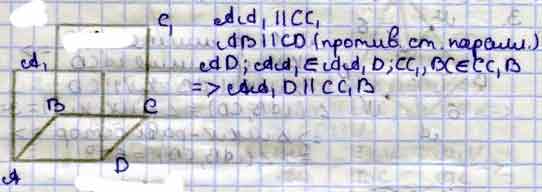 C₁
AA₁ || CC₁
AB || CD (против. ст. паралл.)
A₁
AD; AA₁ ∈ AA₁D; CC₁, BC ∈ CC₁B
B
C
=> AA₁D || CC₁B
A
D